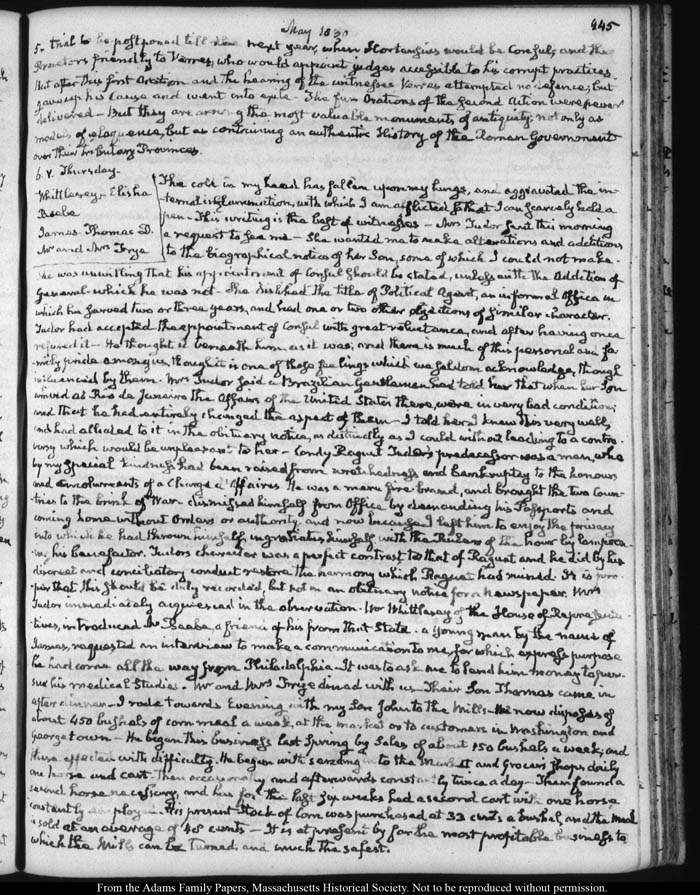 May 1830
445
5. trial to be postponed till the next year, when Hortensius would be Consul, and the
Praetors friendly to Verres, who would appoint judges accessible to his corrupt practices.
But after this first Oration and the hearing of the witnesses Verres attempted no defence, but
gave up his cause and went into exile. The five Orations of the Second Action were never
delivered — But they are among the most valuable monuments of antiquity; not only as
models of eloquence, but as containing an authentic History of the Roman Government
over their tributary Provinces.
6. V. Thursday.
Whittlesey. Elisha
Beebe
James. Thomas D.
Mr and Mrs Frye
The cold in my head has fallen upon my lungs, and aggravated the in-
ternal inflammation, with which I am afflicted so that I can scarcely hold a
pen — This writing is the best of witnesses — Mrs Tudor sent this morning
a request to see me — She wanted me to make alterations and additions
to the biographical notice of her Son, some of which I could not make.
She was unwilling that his appointment of Consul should be stated, unless with the Addition of
General which he was not. She disliked the title of Political Agent, an informal Office in
which he served two or three years, and had one or two other objections of similar character.
Tudor had accepted the appointment of Consul with great reluctance, and after having once
refused it — He thought it beneath him, as it was; and there is much of this personal and fa-
mily pride among us, though it is one of those feelings which we seldom acknowledge, though
influenced by them. Mrs Tudor said a Brazilian Gentleman had told her that when her Son
arrived at Rio de Janeiro the Affairs of the United States there, were in very bad condition;
and that he had entirely changed the aspect of them — I told her I knew this very well,
and had alluded to it in the obituary notice, as distinctly as I could without leading to a contro-
versy which would be unpleasant to her — Condy Raguet Tudor's predecessor was a man, who
by my special kindness had been raised from wretchedness and Bankruptcy to the honours
and emoluments of a Chargé d'Affaires. He was a mere fire-brand, and brought the two Coun-
tries to the brink of War — dismissed himself from Office by demanding his Passports and
coming home without Orders or authority, and now because I left him to enjoy the privacy
into which he had thrown himself, ingratiates himself with the Rulers of the hour by lampoon-
ing his benefactor. Tudors character was a perfect contrast to that of Raguet and he did by his
discreet and conciliatory conduct restore the harmony which Raguet had marred. It is pro-
per that this should be duly recorded, but not in an obituary notice for a Newspaper. Mrs
Tudor immediately acquiesced in the observation. Mr Whittlesey of the House of Representa-
tives, introduced Mr Beebe, a friend of his from that State. A young man by the name of
James, requested an interview to make a communication to me, for which express purpose
he had come all the way from Philadelphia — It was to ask me to lend him money to pur-
sue his medical Studies. Mr and Mrs Frye dined with us — Their Son Thomas came in
after dinner — I rode towards Evening with my Son John to the Mills — He now disposes of
about 450 bushels of corn meal a week, at the market or to customers in Washington and
Georgetown — He began this business last Spring by Sales of about 150 bushels a week; and
these effected with difficulty. He began with sending to the Market and Grocers shops daily
one horse and cart. Then occasionally and afterwards constantly twice a day — Then found a
second horse necessary, and has for the last six weeks had a second cart with one horse
constantly employed. His present Stock of Corn was purchased at 33 cents a bushel, and the meal
is sold at an average of 48 cents — It is at present by far the most profitable business to
which the Mills can be turned, and much the safest.
From the Adams Family Papers, Massachusetts Historical Society. Not to be reproduced without permission.